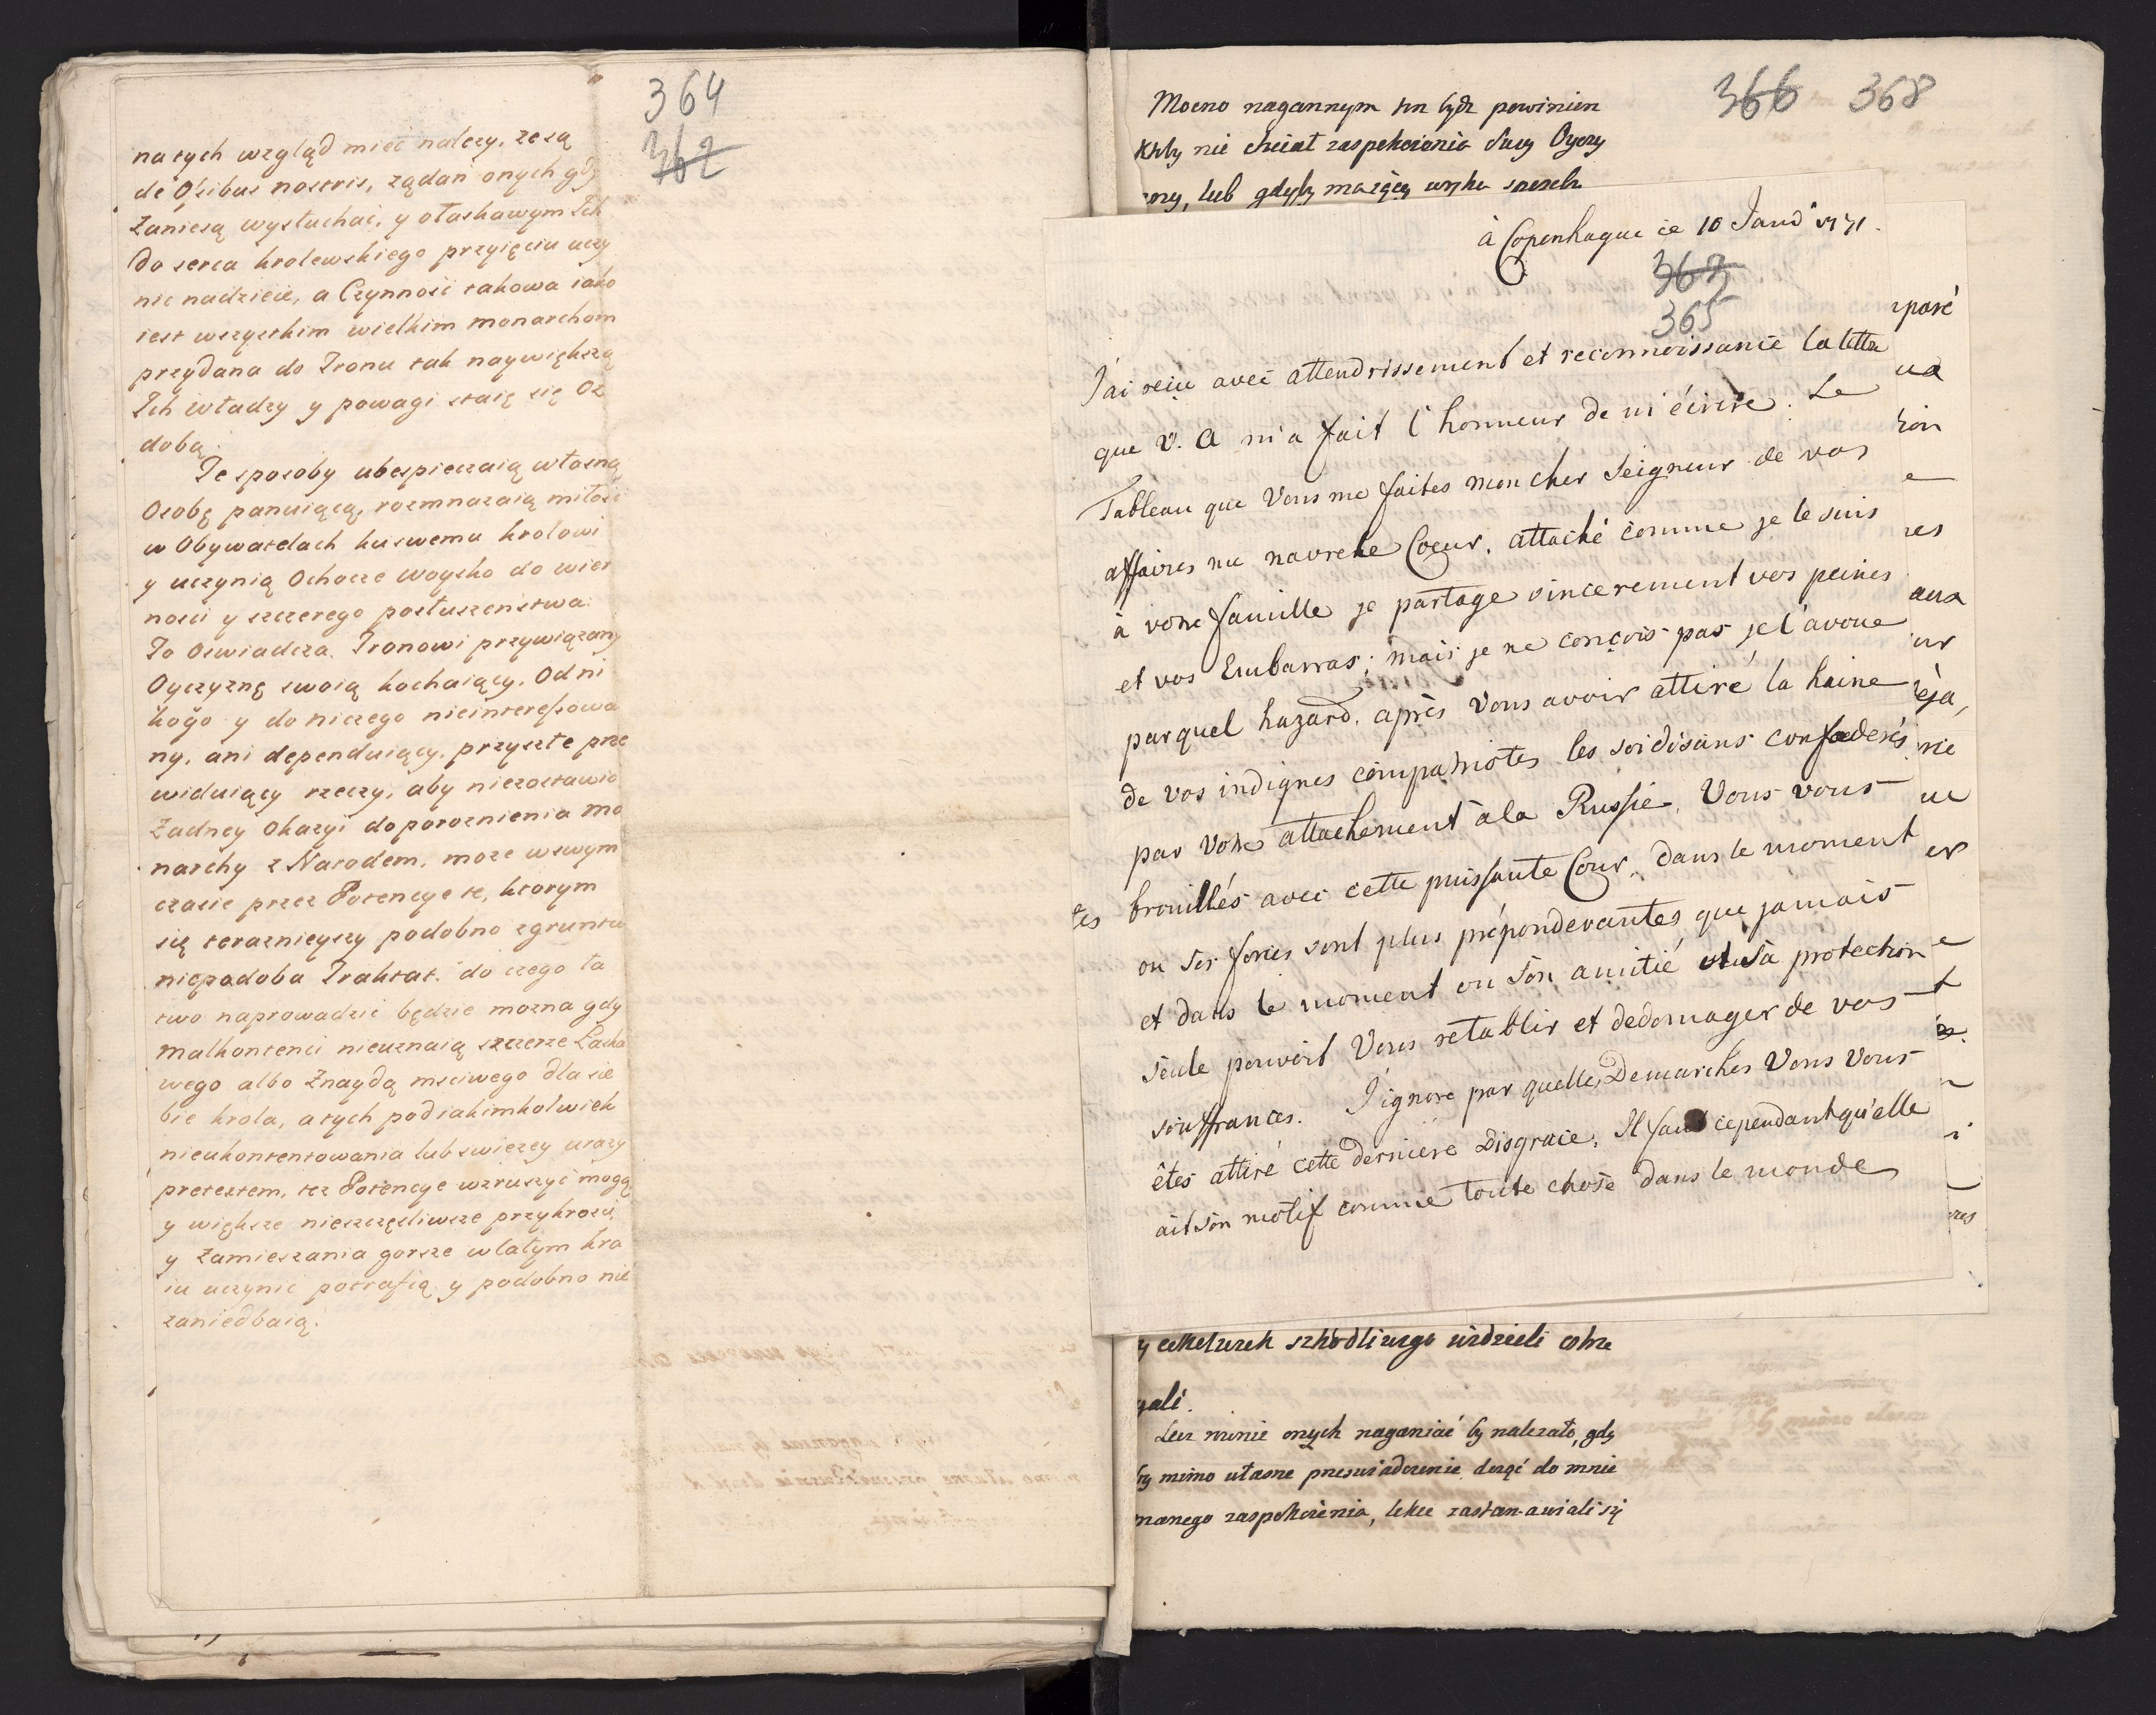 364
362
na tych wzgląd mieć należy, że są
de Oſsibus nostris, żądań onych gdy
Zaniesą wysłuchać, y ołaskawym Ich
do serca krolewskiego przyięciu uczy
nic nadzieie, a Czynność takowa iako
iest wszystkim wielkim monarchom
przydana do Tronu tak naywiększą
Ich władzy y powagi staię się Oz
dobą.
Te sposoby ubespieczaią własną
Osobę panuiącą, rozmnażaią miłość
w Obywatelach ku swemu krolowi
y uczynią Ochocze Woysko do wier
ności y szczerego posłuszeństwa.
To Oswiadcza Tronowi przywiązany
Oyczyznę swoią kochaiący. Od ni
kogo y do niczego nieintereſsowa
ny, ani dependuiący, przyszłe prze
widuiący rzeczy, aby niezostawić
Zadney Okazyi do poroznienia Mo
narchy z Narodem, może wswym
czasie przez Potencye te, ktorym
się terazniejszy podobno zgruntu
niepodoba Traktat. do czego ła
two naprowadzić będzie można gdy
Malkontenci nieuznaią szczerze Łaska
wego albo Znaydą msciwego dla sie
bie krola, a tych pod iakimkolwiek
nieukontentowania lub swieżey urazy
pretextem, też Potencye wzruszyć mogą
y większe nieszczęsliwsze przykrości
y Zamieszania gorsze w całym kra
iu uczynić potrafią y podobno nie
zaniedbaią.
366 368
Mocno nagannym ten bydz powinien
Ktory nie chciał zaspokoienia Swey Oyczy
zny, lub gdyby maiący
à Copenhague ce 10 Janv 1771.
367
365
J'ai reçu avec attendrissement et reconnoissance la lettre
que V. A m'a fait l'honneur de m'écrire. Le
Tableau que Vous me faites mon cher Seigneur de vos
affaires me navre le Coeur. attaché comme je le suis
à votre famille je partage sincerement vos peines
et vos Embarras; mais je ne conçois pas je l'avoue
par quel hazard, après Vous avoir attiré la haine
de vos indignes compatriotes les soidisans confederés
par votre attachement à la Russie, Vous vous
brouillés avec cette puissante Cour, dans le moment
ou ses forces sont plus prépondérantes que jamais
et dans le moment ou son amitié et sa protection
seule pouvoit Vous retablir et dedomager de vos
souffrances. J'ignore par quelles Demarches Vous Vous
êtes attiré cette derniere Disgrace, Il faut cependant qu'elle
ait son motif comme toute chose dans le monde
szkodliwego widzieli
gali.
Lecz minie onych naganiać by nalezało, gdy
by mimo własne przeswiadczenie dosyć do mnie
manego zaspokoienia, lekce zastanawiali się